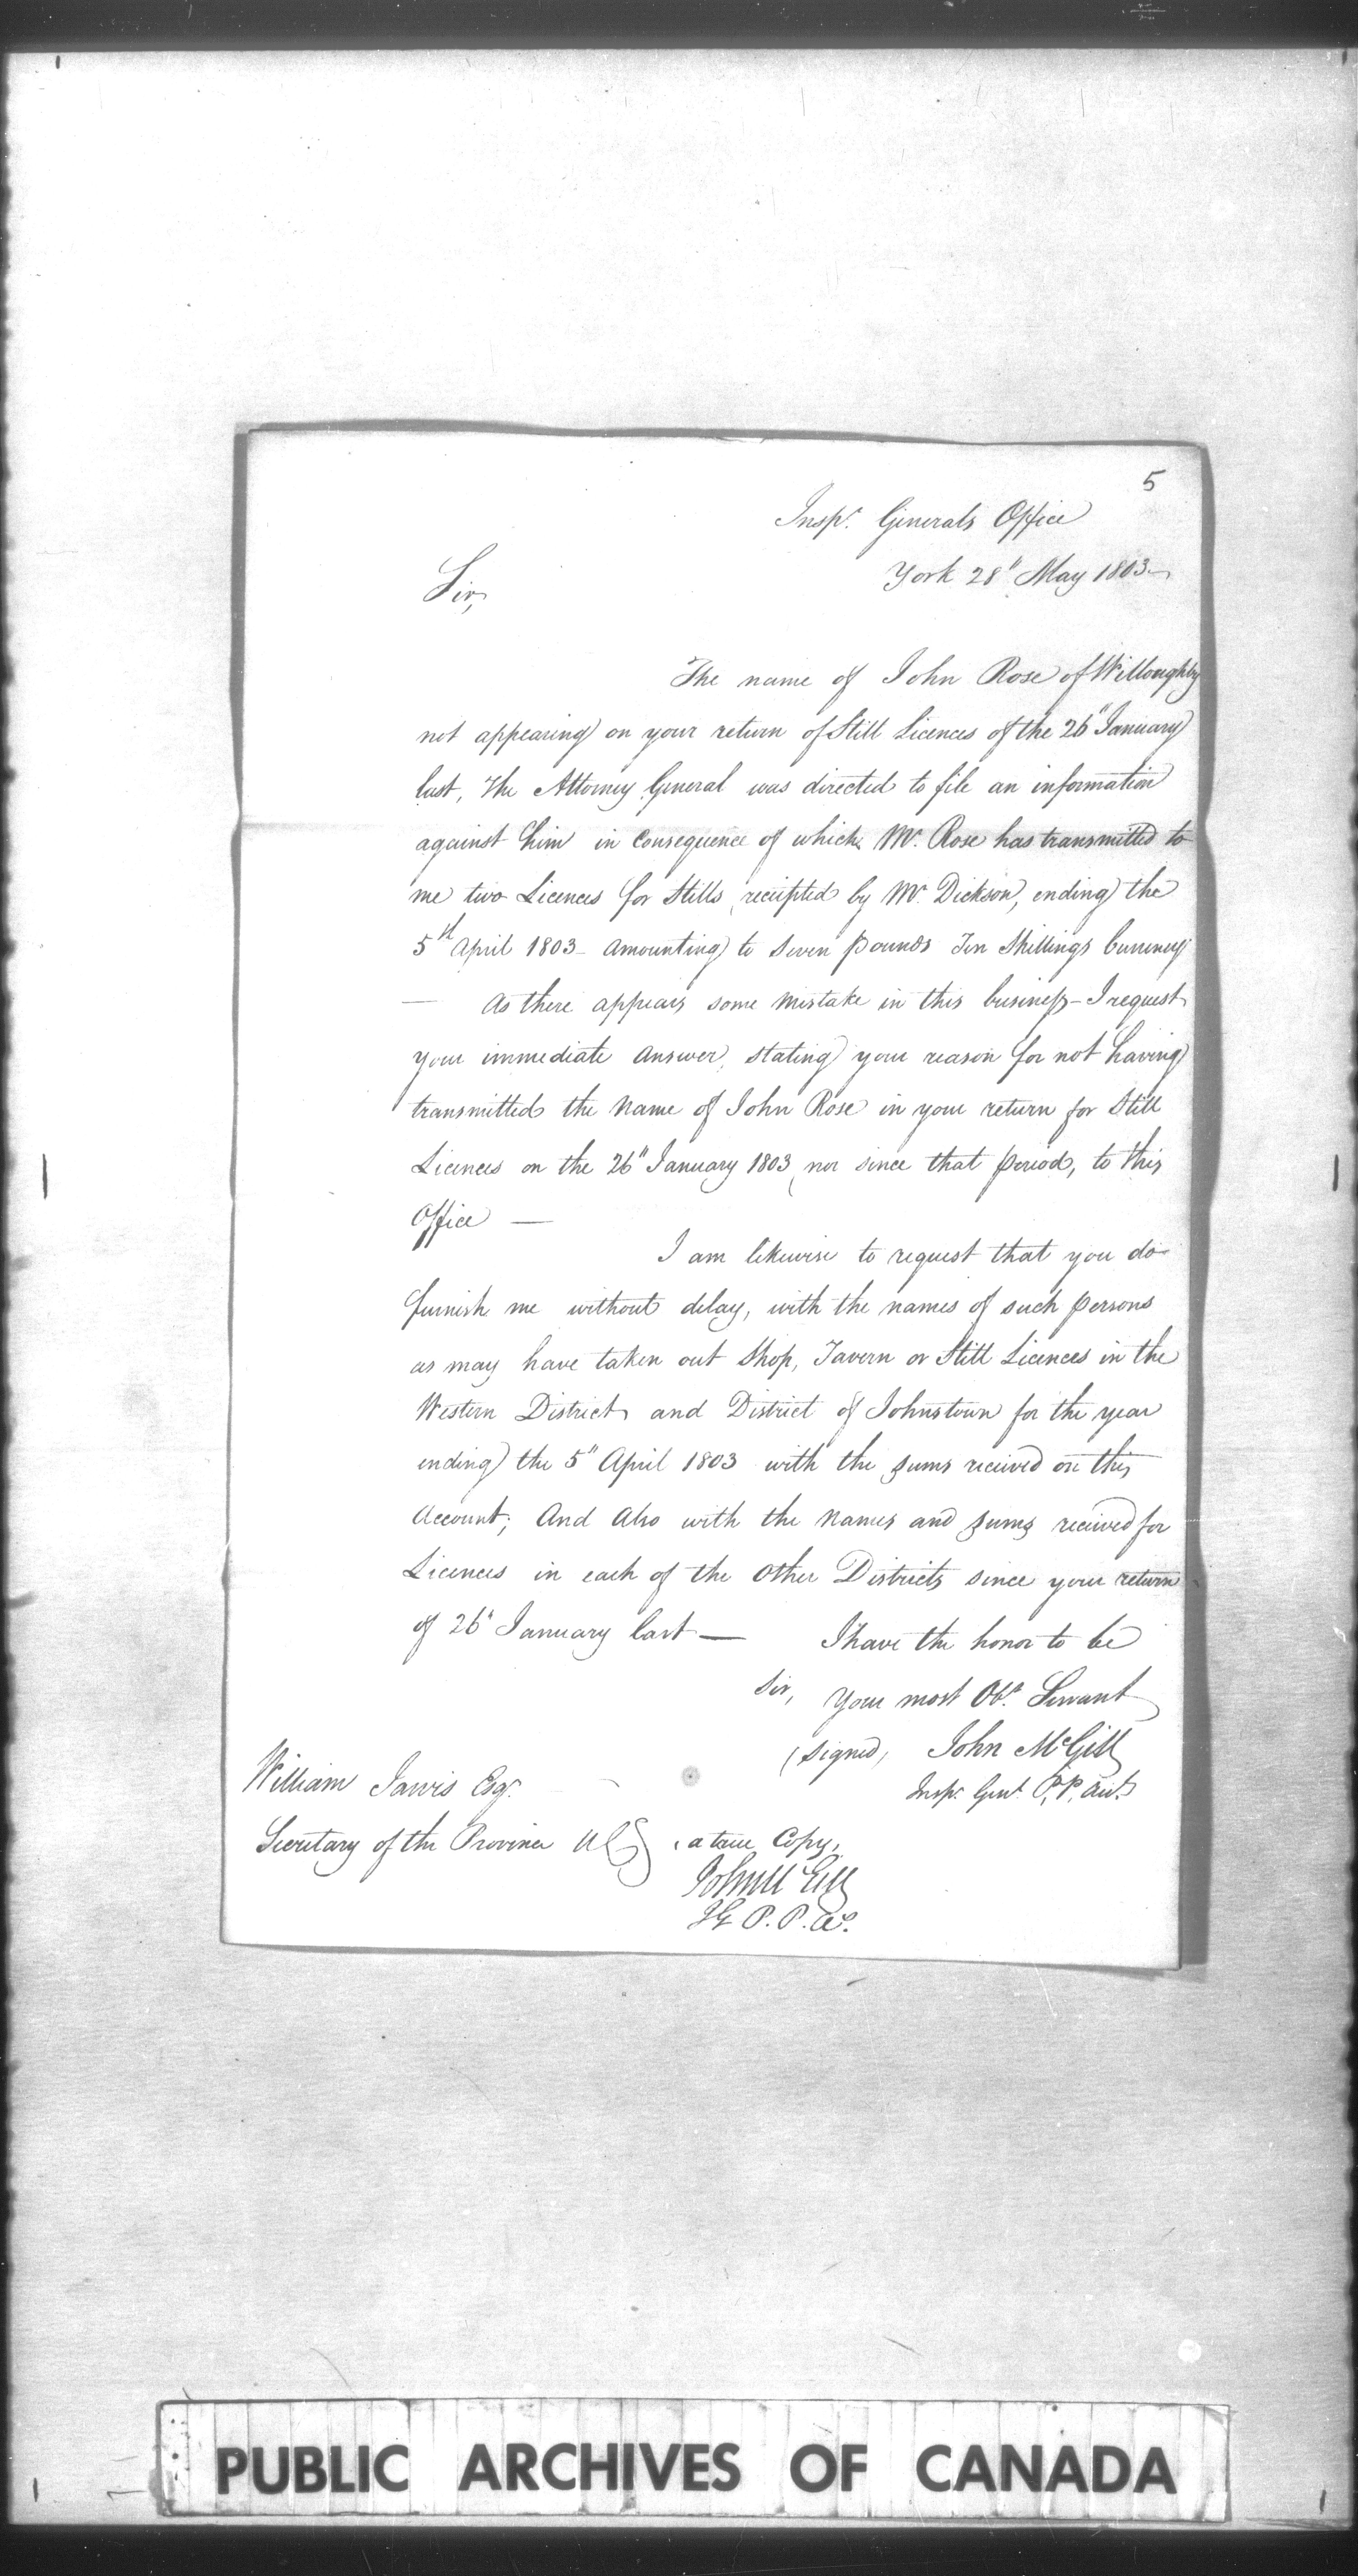 5
Inspr. Generals Office
York 28" May 1803
Sir,
The name of John Rose of Willoughby
not appearing on your return of Still Licences of the 26" January
last, The Attorney General was directed to file an information
against him in consequence of which Mr. Rose has transmitted to
me two Licences for Stills, receipted by Mr. Dickson, ending the
5th April 1803 - amounting to Seven pounds Ten Shillings Currency
— As there appears some mistake in this business - I request
your immediate Answer, stating your reason for not having
transmitted the Name of John Rose in your return for Still
Licences on the 26" January 1803, nor since that period, to this
Office —
I am likewise to request that you do
furnish me without delay, with the names of such persons
as may have taken out Shop, Tavern or Still Licences in the
Western District and District of Johnstown for the year
ending the 5" April 1803 with the sums received on this
Account; And Also with the Names and sums received for
Licences in each of the Other Districts since your return
of 26" January last —
I have the honor to be
Sir, Your most Obt. Servant
(Signed) John McGill
Inspr. Genl. P. P. Acts
William Jarvis Esqr.
Secretary of the Province UC
a true Copy,
John McGill
IG P. P. Ac.
PUBLIC ARCHIVES OF CANADA